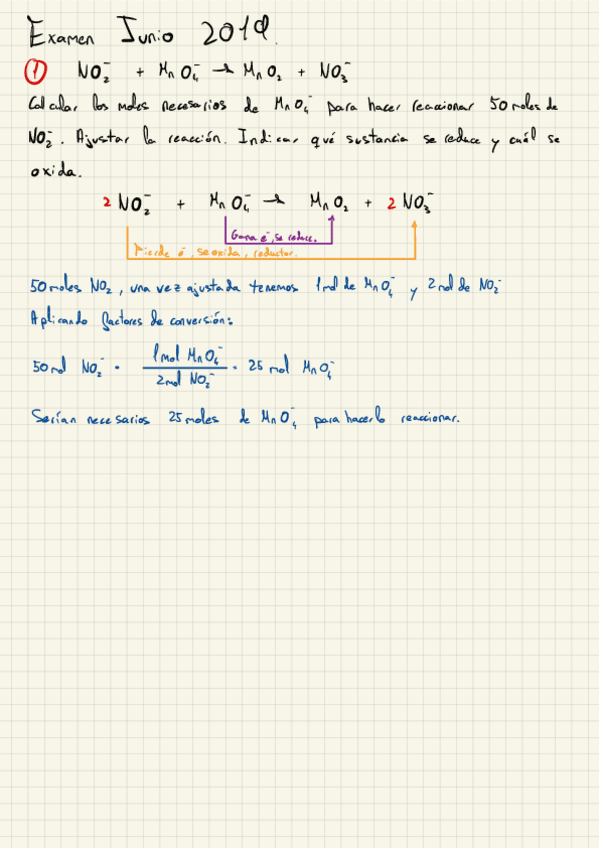 Examen Junio 2019.
① NO₂⁻ + MnO₄⁻ → MnO₂ + NO₃⁻
Calcular los moles necesarios de MnO₄⁻ para hacer reaccionar 50 moles de
NO₂⁻. Ajustar la reacción. Indicar qué sustancia se reduce y cuál se
oxida.
2 NO₂⁻ + MnO₄⁻ → MnO₂ + 2 NO₃⁻
Gana e⁻, se reduce.
Pierde e⁻, se oxida, reductor.
50 moles NO₂, una vez ajustada tenemos 1 mol de MnO₄⁻ y 2 mol de NO₂⁻
Aplicando factores de conversión:
50 mol NO₂⁻ · 1 mol MnO₄⁻ / 2 mol NO₂⁻ = 25 mol MnO₄⁻
Serían necesarios 25 moles de MnO₄⁻ para hacerlo reaccionar.